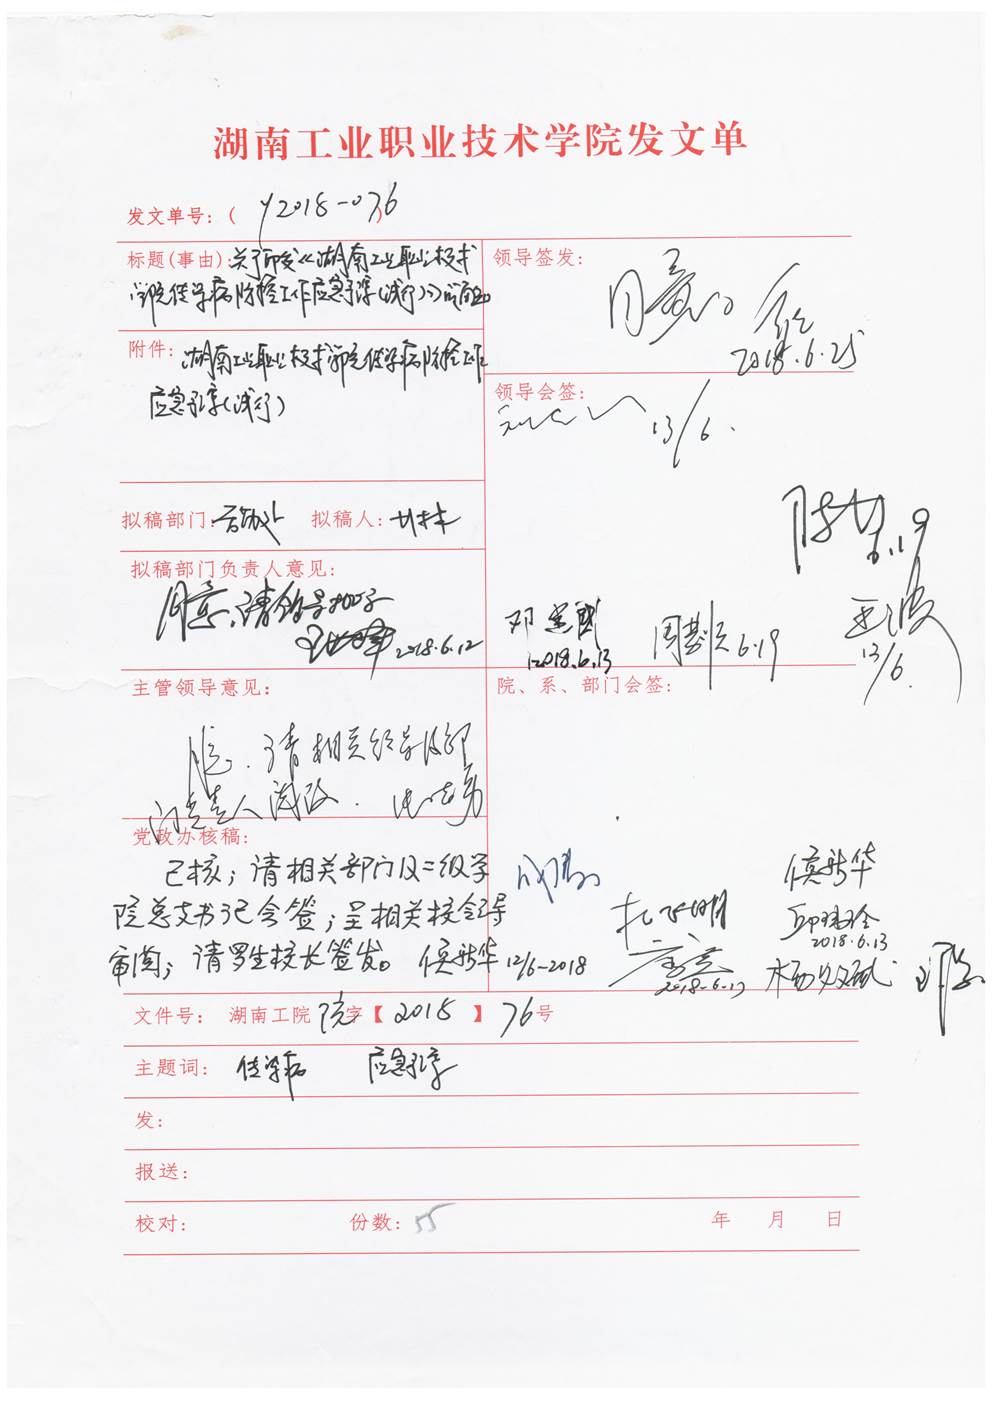 湖南工业职业技术学院发文单
发文单号：( y2018-076
标题(事由)：关于印发《湖南工业职业技术
学院传染病防控工作应急预案(试行)》的通知
附件：湖南工业职业技术学院传染病防控工作
应急预案(试行)
拟稿部门：后勤处 拟稿人：
拟稿部门负责人意见：
同意，请领导批示
2018.6.12
主管领导意见：
请相关领导及部
门负责人阅改.
党政办核稿：
已核；请相关部门及二级学
院总支书记会签；呈相关校领导
审阅；请罗生校长签发。侯新华 12/6-2018
领导签发：
同意
2018.6.25
领导会签：
13/6.
6.19
2018.6.13
6.19
13/6.
院、系、部门会签：
侯新华
2018.6.13
2018.6.13
文件号：湖南工院 院字【2018】76号
主题词：传染病 应急预案
发：
报送：
校对： 份数：55 年 月 日